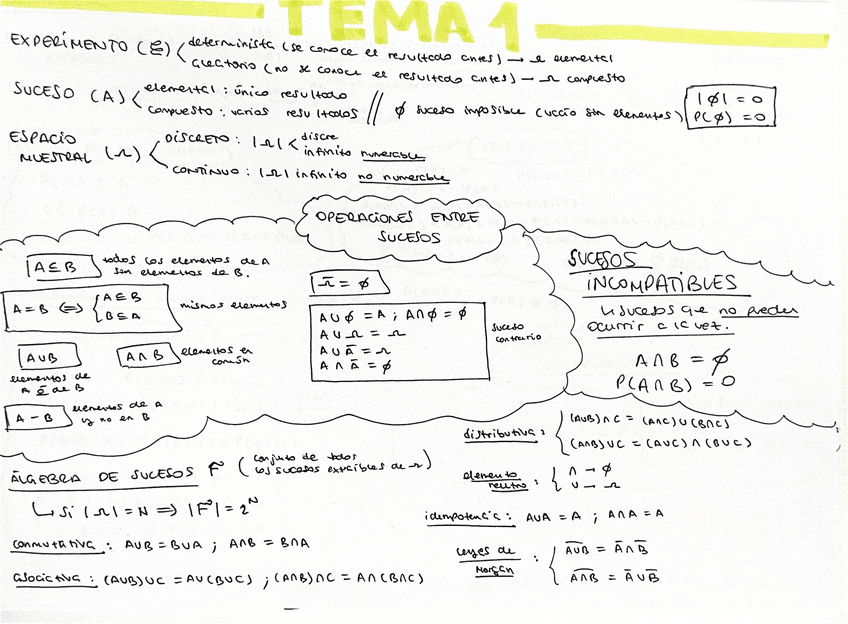 TEMA 1
EXPERIMENTO (ξ) determinista (se conoce el resultado antes) → Ω elemental
aleatorio (no se conoce el resultado antes) → Ω compuesto
SUCESO (A) elemental : único resultado
compuesto : varios resultados // ϕ suceso imposible (vacío sin elementos) |ϕ| = 0
P(ϕ) = 0
ESPACIO MUESTRAL (Ω)
DISCRETO : |Ω| < discre
infinito numerable
CONTINUO : |Ω| infinito no numerable
OPERACIONES ENTRE
SUCESOS
A ⊆ B todos los elementos de A
son elementos de B.
A = B ⟺ { A ⊆ B
B ⊆ A
mismos elementos
A∪B
elementos de
A o de B
A∩B elementos en
común
A - B elementos de A
y no en B
Ω̅ = ϕ
A∪ϕ = A ; A∩ϕ = ϕ
A∪Ω = Ω
A∪A̅ = Ω
A∩A̅ = ϕ
suceso
contrario
SUCESOS
INCOMPATIBLES
↳ sucesos que no pueden
ocurrir a la vez.
A∩B = ϕ
P(A∩B) = 0
ÁLGEBRA DE SUCESOS F (conjunto de todos
los sucesos extraíbles de Ω)
↳ Si |Ω| = N ⟹ |F| = 2^N
conmutativa : A∪B = B∪A ; A∩B = B∩A
asociativa : (A∪B)∪C = A∪(B∪C) ; (A∩B)∩C = A∩(B∩C)
distributiva : { (A∪B)∩C = (A∩C)∪(B∩C)
(A∩B)∪C = (A∪C)∩(B∪C)
elemento
neutro : { ∩ → ϕ
∪ → Ω
idempotencia : A∪A = A ; A∩A = A
Leyes de
Morgan : { A̅∪̅B̅ = A̅∩B̅
A̅∩̅B̅ = A̅∪B̅